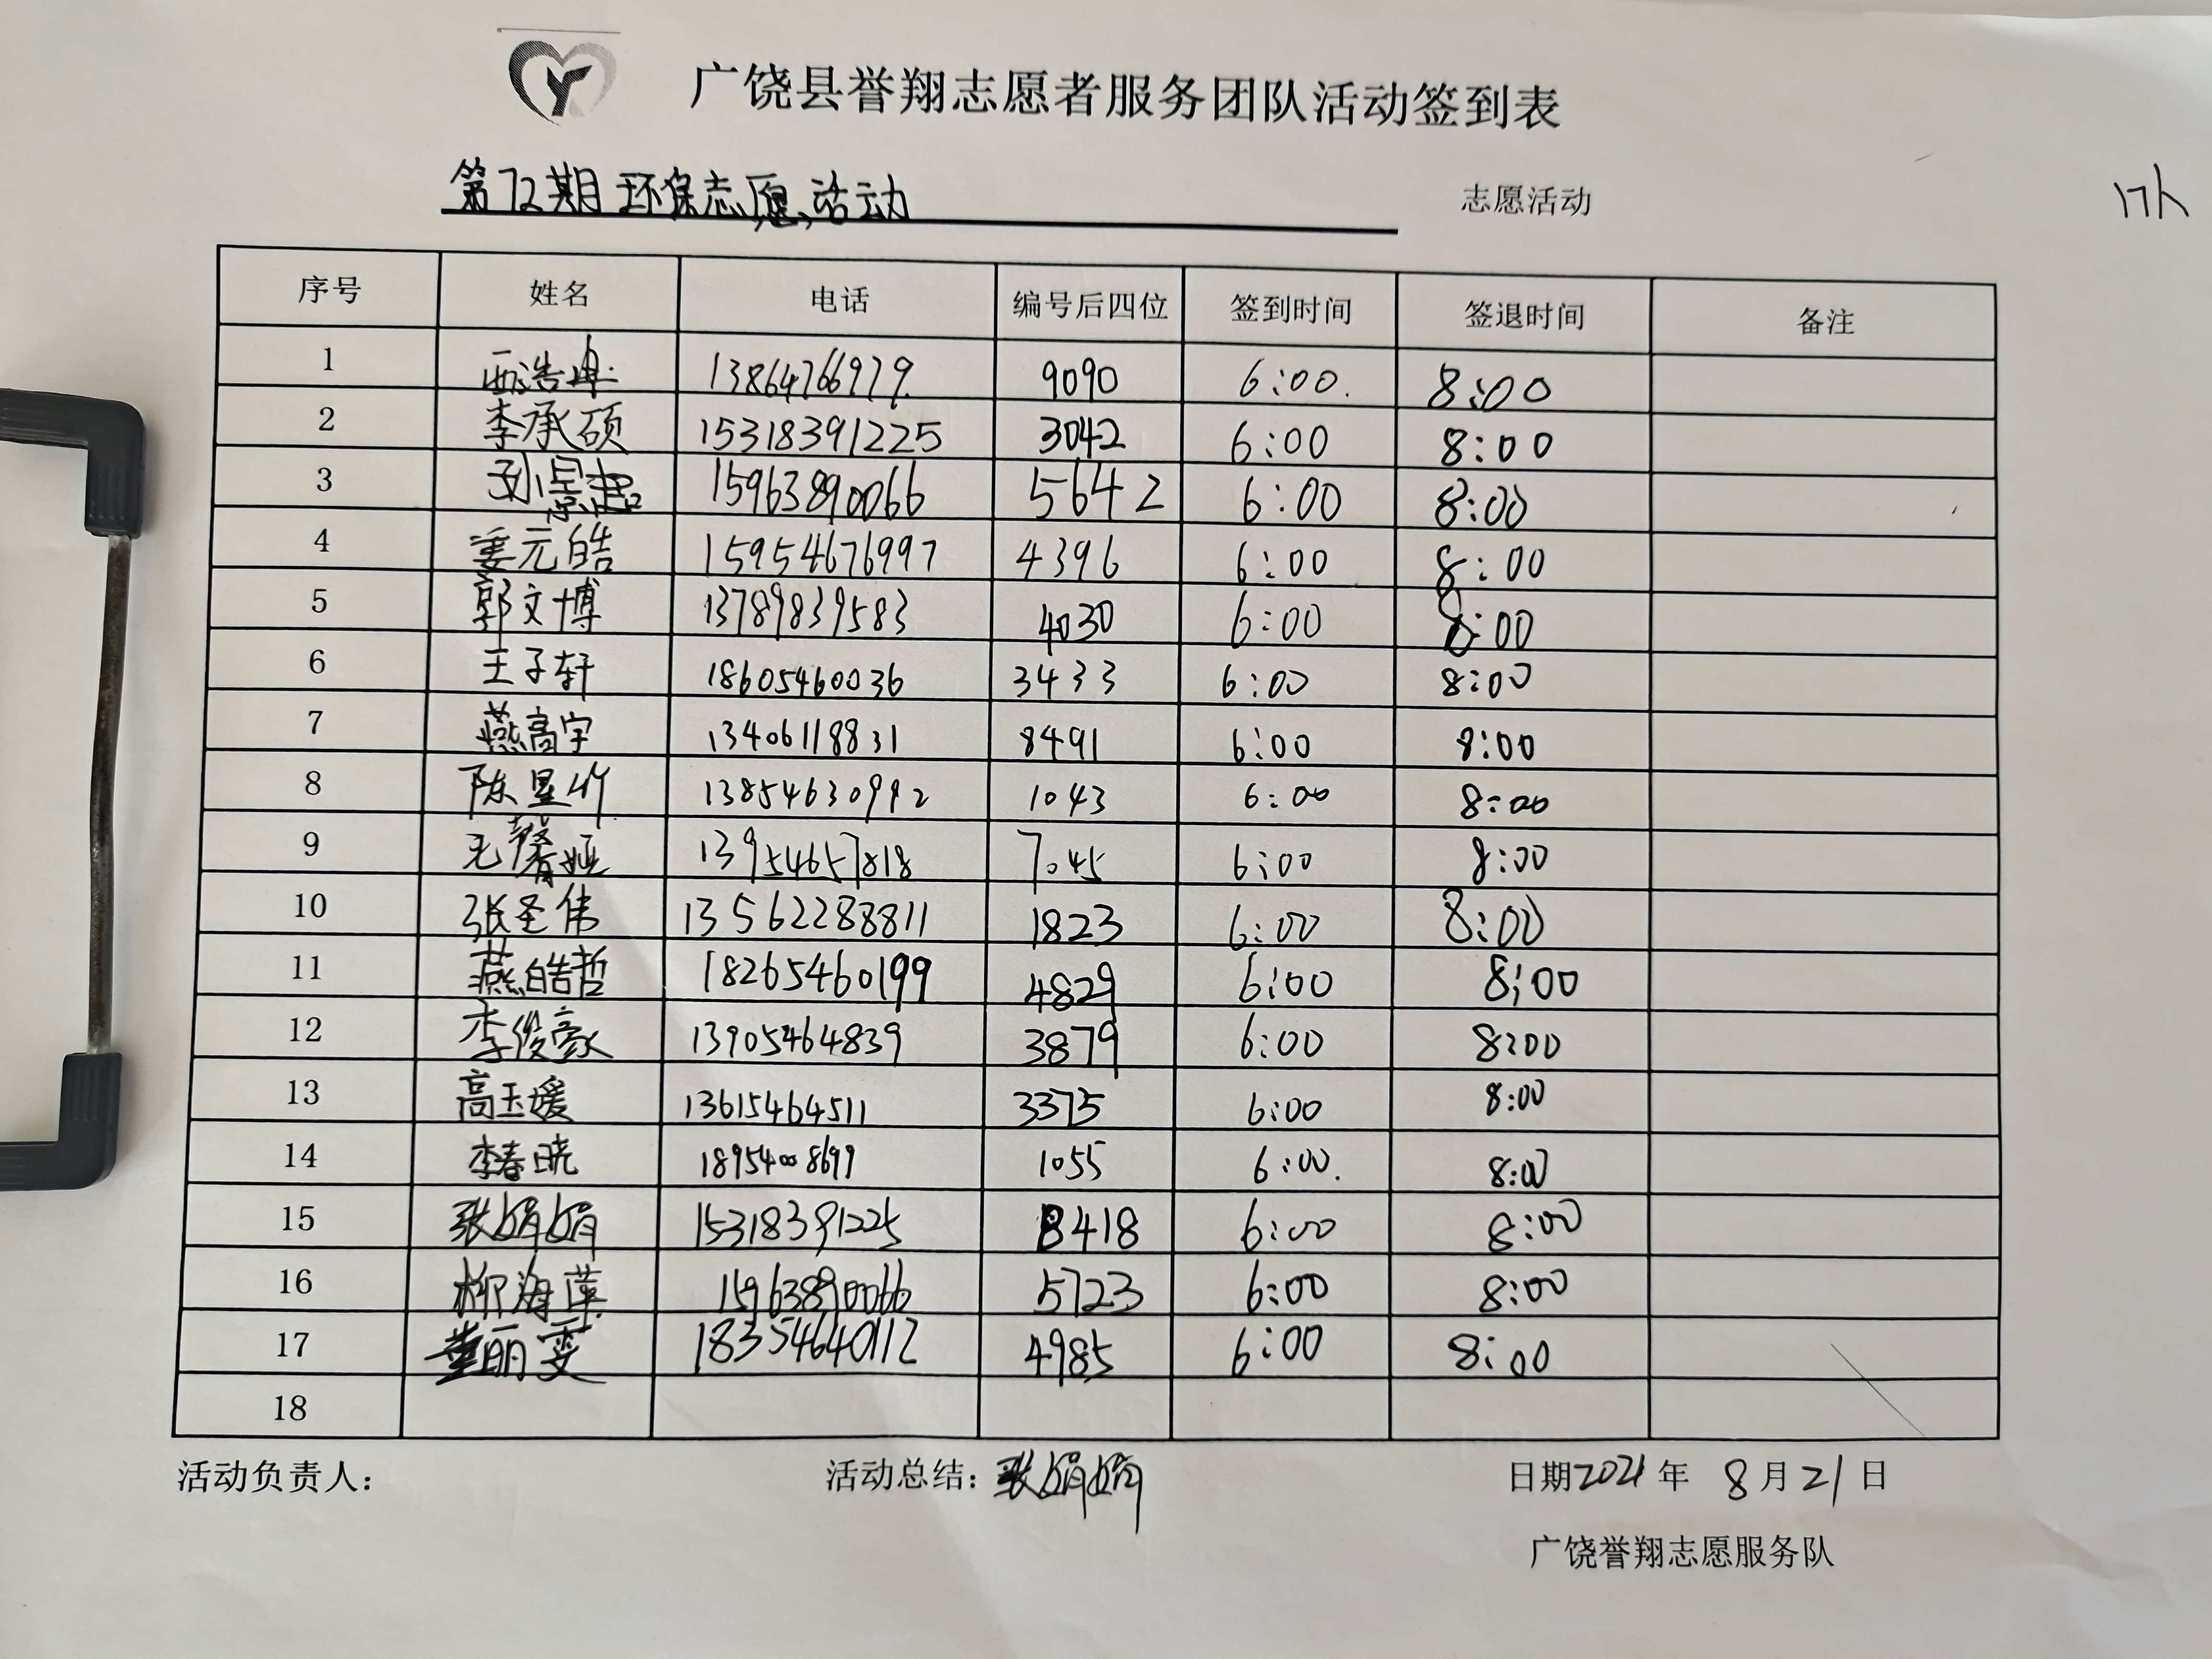 广饶县誉翔志愿者服务团队活动签到表
第72期环保志愿活动 志愿活动 17人
序号 姓名 电话 编号后四位 签到时间 签退时间 备注
1 浩坤 13864766979 9090 6:00 8:00
2 李承硕 15318391225 3042 6:00 8:00
3 孙景 15963890066 5642 6:00 8:00
4 元皓 15954676997 4396 6:00 8:00
5 郭文博 13789839583 4030 6:00 8:00
6 王子轩 18605460036 3433 6:00 8:00
7 燕高宇 13406118831 8491 6:00 8:00
8 陈星竹 13854630992 1043 6:00 8:00
9 毛馨娅 13954657818 7045 6:00 8:00
10 张圣伟 13562288811 1823 6:00 8:00
11 燕皓哲 18265460199 4829 6:00 8:00
12 李俊豪 13905464839 3879 6:00 8:00
13 高玉媛 13615464511 3375 6:00 8:00
14 李春晓 18954008699 1055 6:00 8:00
15 张娟娟 15318391225 8418 6:00 8:00
16 柳海燕 15963890066 5723 6:00 8:00
17 董丽雯 18354640112 4985 6:00 8:00
18
活动负责人： 活动总结：张娟娟 日期2021年 8月21日
广饶誉翔志愿服务队